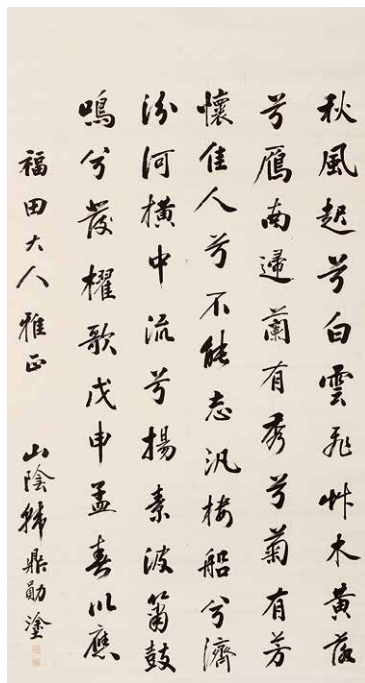 秋風起兮白雲飛艸木黃落
兮鴈南歸蘭有秀兮菊有芳
懷佳人兮不能忘汎樓船兮濟
汾河橫中流兮揚素波簫鼓
鳴兮發櫂歌戊申孟春以應
福田大人雅正 山陰韓鼎勛塗